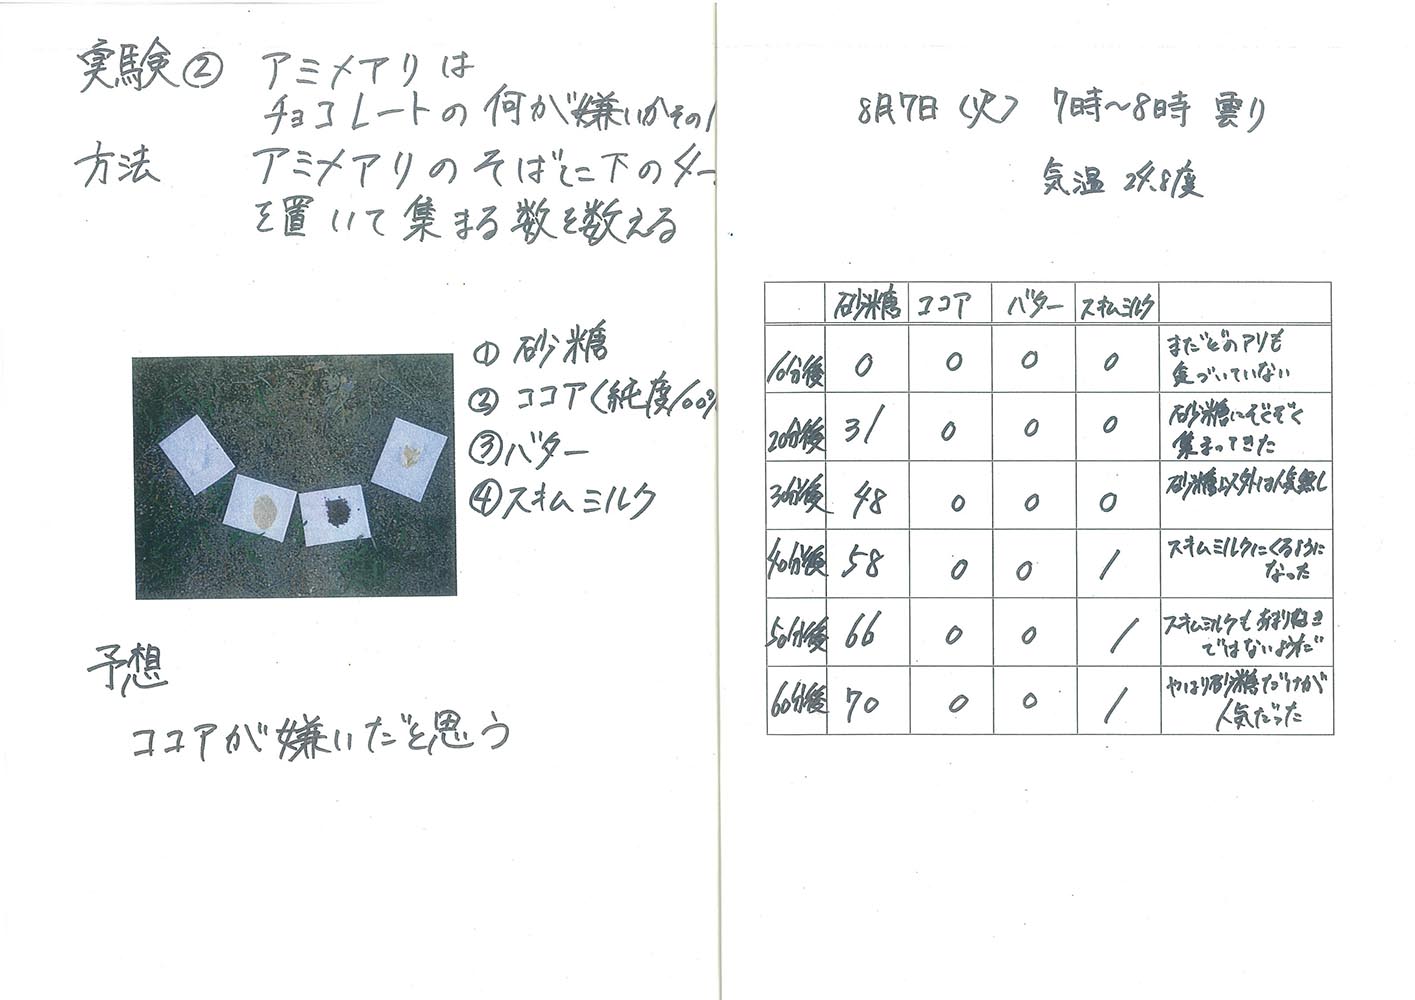 実験② アミメアリは
チョコレートの何が嫌いかその1
方法 アミメアリのそばに下の4
を置いて集まる数を数える
① 砂糖
② ココア(純度100%
③ バター
④ スキムミルク
予想
ココアが嫌いだと思う
8月7日(火) 7時~8時 曇り
気温 24.8度
砂糖 ココア バター スキムミルク
10分後 0 0 0 0 まだどのアリも
気づいていない
20分後 31 0 0 0 砂糖にぞくぞく
集まってきた
30分後 48 0 0 0 砂糖以外は人気無し
40分後 58 0 0 1 スキムミルクにくるように
なった
50分後 66 0 0 1 スキムミルクもあまり好き
ではないようだ
60分後 70 0 0 1 やはり砂糖だけが
人気だった